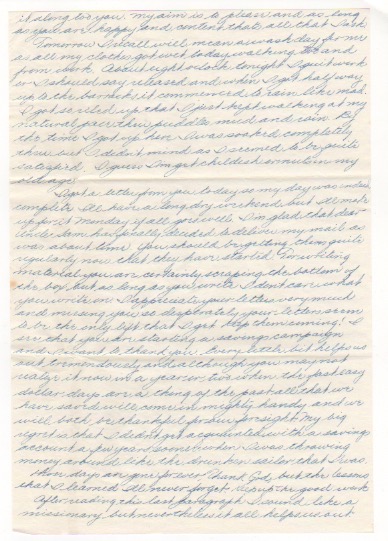 it along to you. My aim is to please and as long
as you are happy and content that's all that I ask.
Tomorrow I recall will mean a wash day for me
as all my clothes got wet today walking to and
from work. About eight o'clock tonight I quit work
or I should say released and when I got half way
up to the barracks it commenced to rain like mad.
I got so riled up that I just kept walking at my
natural pace thru puddles mud and rain. By
the time I got up here I was soaked completely
thru but I didn't mind as I seemed to be quite
satisfied. I guess I'm get childish or nuts in my
old age.
I got a letter from you today so my day was indeed
complete. I'll have a long dry weekend but I'll make
up for it Monday if all goes well. I'm glad that dear
Uncle Sam has finally decided to deliver my mail as
was about time. You should be getting them quite
regularly now that they have started. For writing
material you are certainly scraping the bottom of
the box but as long as you write I don't care what
you write on. I appreciate your letters very much
and missing you so desperately your letters seem
to be the only lift that I get. Keep them coming! I
see that you are starting a savings campaign
and I want to thank you. Every little bit helps us
out tremendously and although you may not
realize it now in a year or two when the fast easy
dollar days are a thing of the past all that we
have saved will come in mighty handy and we
will both be thankful for our foresight. My big
regret is that I didn't get acquainted with a savings
account a few years sooner when I was throwing
money around like the drunken sailor that I was.
Those days are gone forever Thank God, but the lessons
that I learned I'll never forget. Keep up the good work
After reading the last paragraph I sound like a
missionary but nevertheless it all helps us out